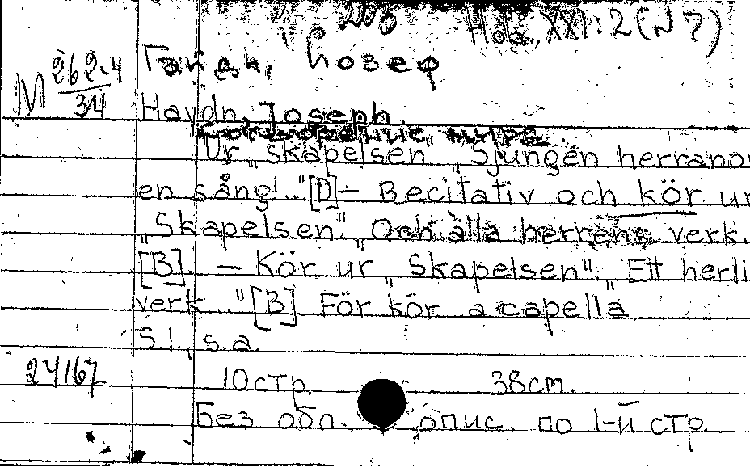 Hob. XXI:2 (N 7)
Гайдн, Йозеф
M 262.4
34
Haydn, Joseph.
Сотворение мира
Ur „Skapelsen" „Sjungen herranom
en sång!.." [D] – Recitativ och kör ur
„Skapelsen" „Och alla herrens verk.
[B]. – Kör ur „Skapelsen". „Ett herli
verk.." [B] För kör a capella
S.l., s.a.
24167 10 стр. 38 cm.
Без обл. опис. по 1-й стр.